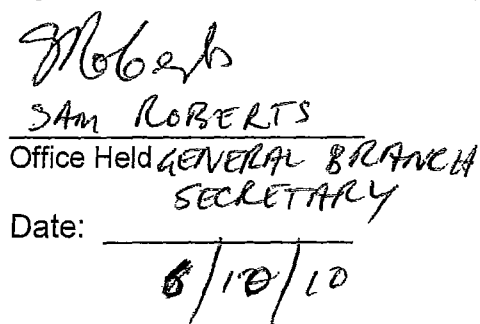 SRoberts
SAM ROBERTS
Office Held GENERAL BRANCH
SECRETARY
Date:
6/10/10